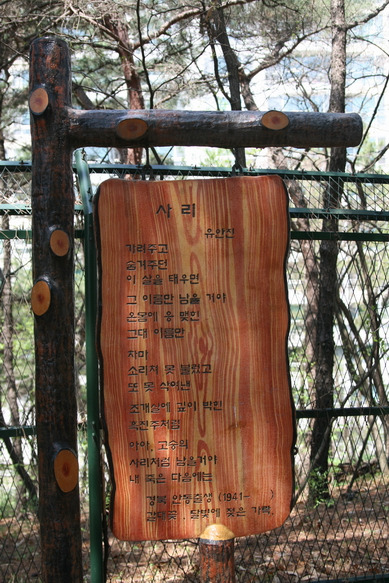 사리
유안진
가려주고
숨겨주던
이 살을 태우면
그 이름만 남을 거야
온몸에 옹 맺힌
그대 이름만
차마
소리쳐 못 불렀고
또 못 삭여낸
조개살에 깊이 박힌
흑진주처럼
아아, 고승의
사리처럼 남을거야
내 죽은 다음에는
경북 안동출생 (1941- )
갈대꽃, 달빛에 젖은 가락